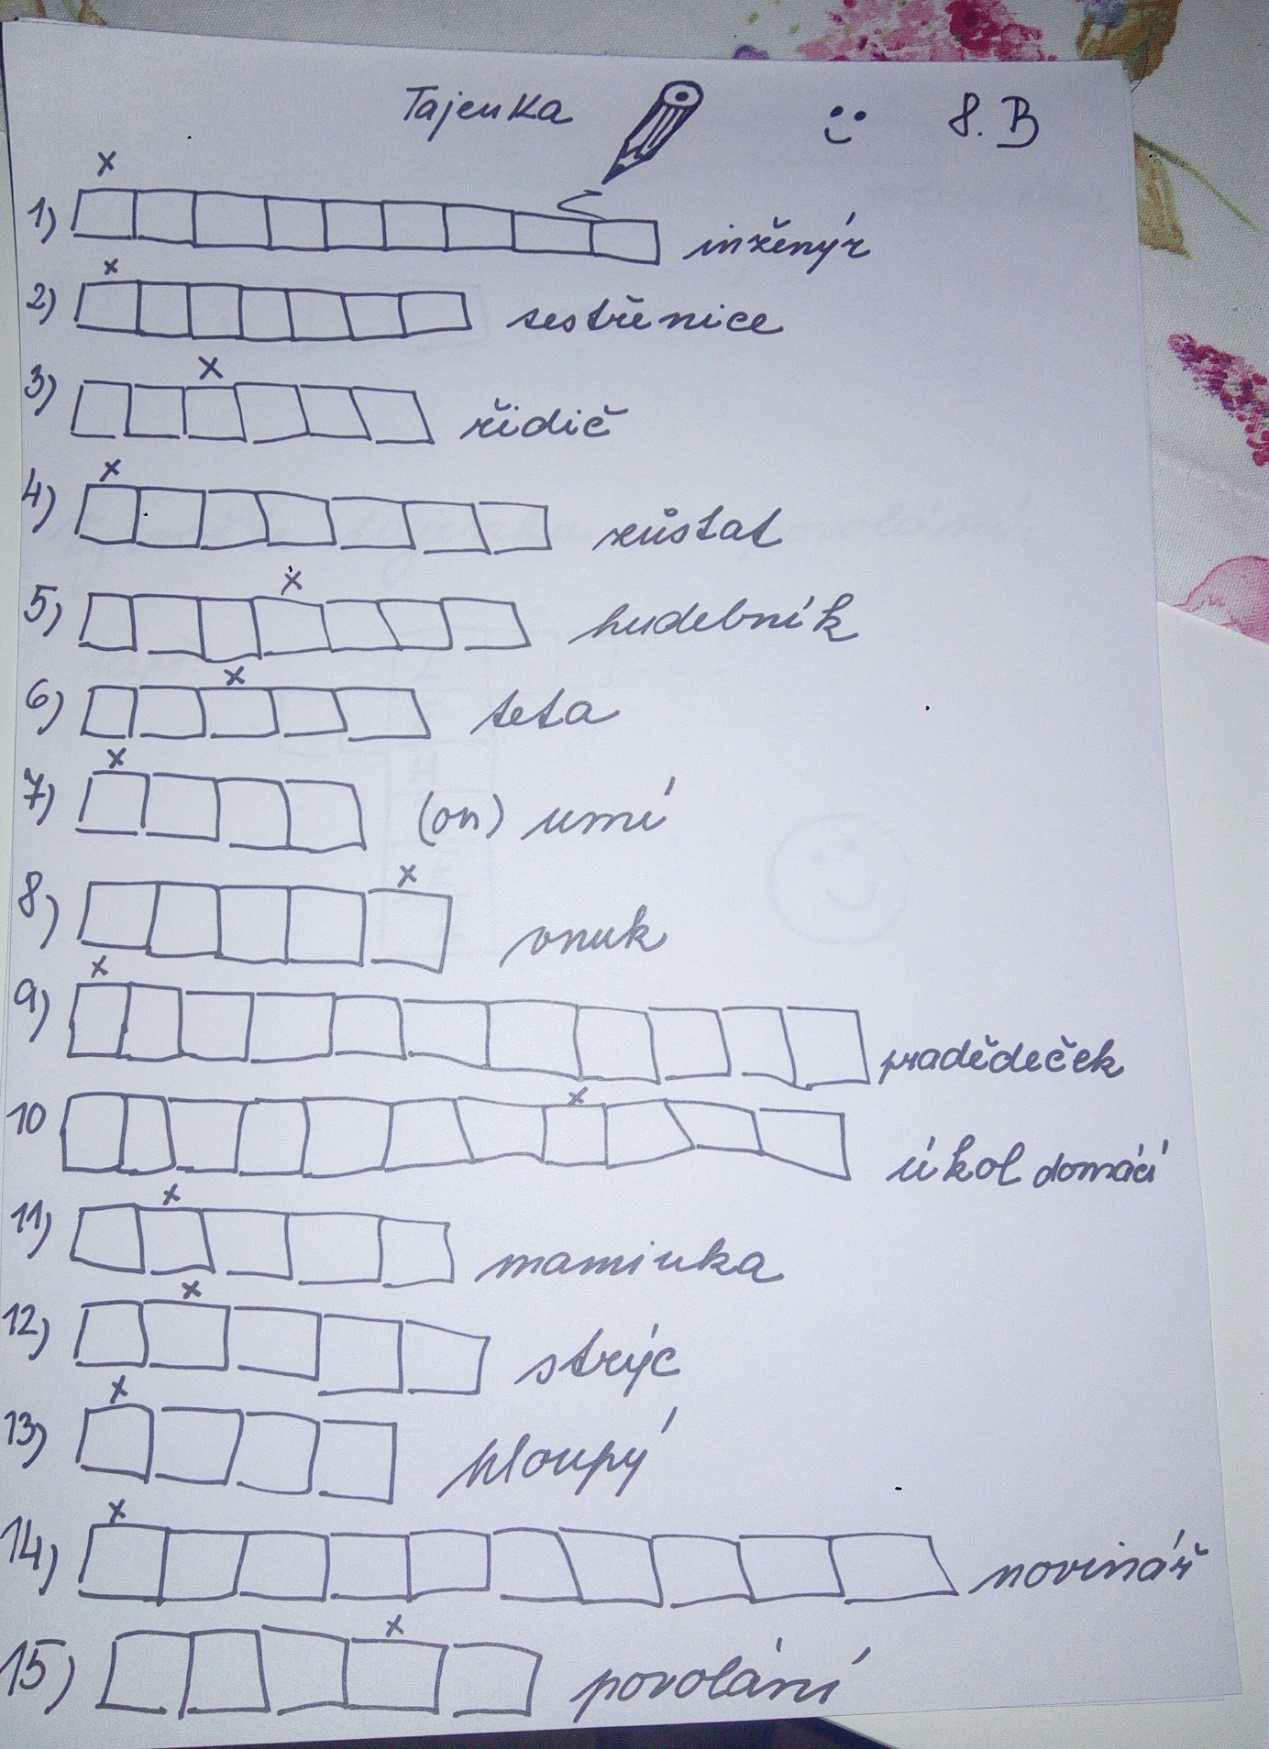 Tajenka 8. B
x
1) inženýr
x
2) sestřenice
x
3) řidič
x
4) zůstat
x
5) hudebník
x
6) teta
x
7) (on) umí
x
8) vnuk
x
9) pradědeček
x
10 úkol domácí
x
11) maminka
x
12) strýc
x
13) hloupý
x
14) novinář
x
15) povolání